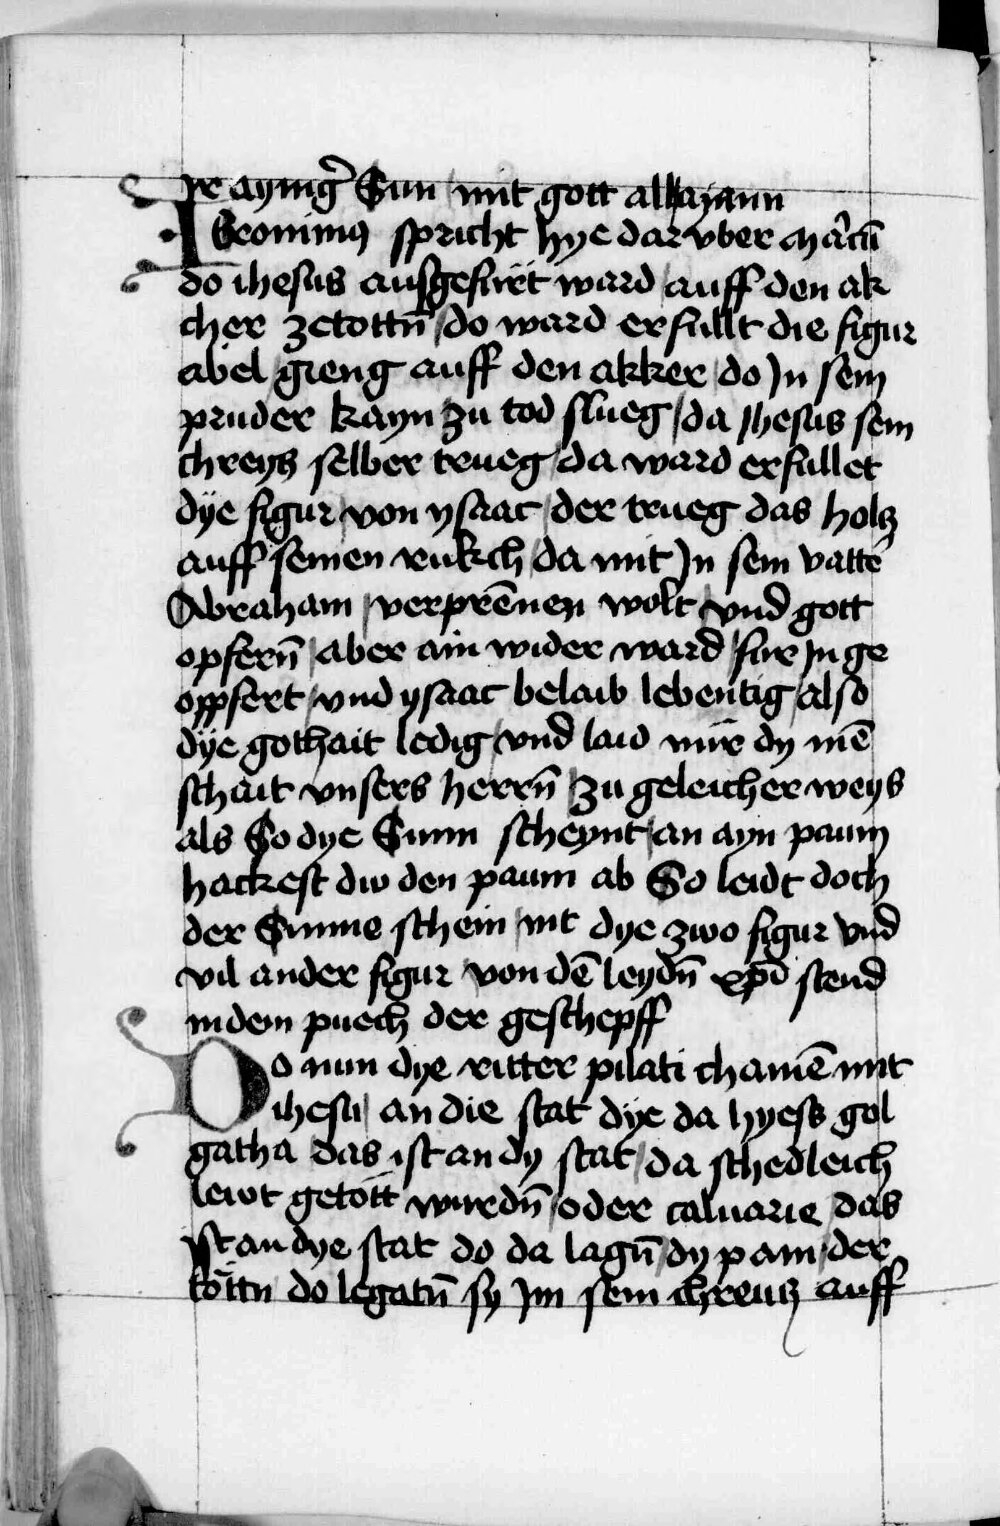 Ir aynig̃ Sun mit gott allayann
Ieronimꝰ spricht hye dar vber Marcū
do ihesus ausgefürt ward auff den ak
cher zetottn̄ do ward erfullt die figur
abel gieng auff den akker do In sein
pruder kayn zu tod slueg da Ihesus sein
chreytz selber trueg da ward erfullet
dye figur von ysaac der trueg das holtz
auff seinen rukch da mit In sein vatte͛
Abraham verprēnen wolt vnd gott
opfern̄ aber ain wider ward für In ge
oppfert vnd ysaac belaib lebentig also
dye gothait ledig vnd laid nür dy mē
schait vnsers herrn̄ zu geleicher weys
als So dye Sunn scheynt an ayn paum
hackest diu den paum ab So leidt doch
der Sunne schein nit dye zwo figur vnd
vil ander figur von dē leydn̄ xp̄i stend
in dem puech der geschepff
Do nun dye ritter pilati chamē mit
ihesu an die stat dye da hyess gol
gatha das ist an dy stat da schedleich
lewt getött wurdn̄ oder caluarie das
ist an dye stat do da lagn̄ dy pain der
töttn do legatn̄ sy Im sein chreutz auff